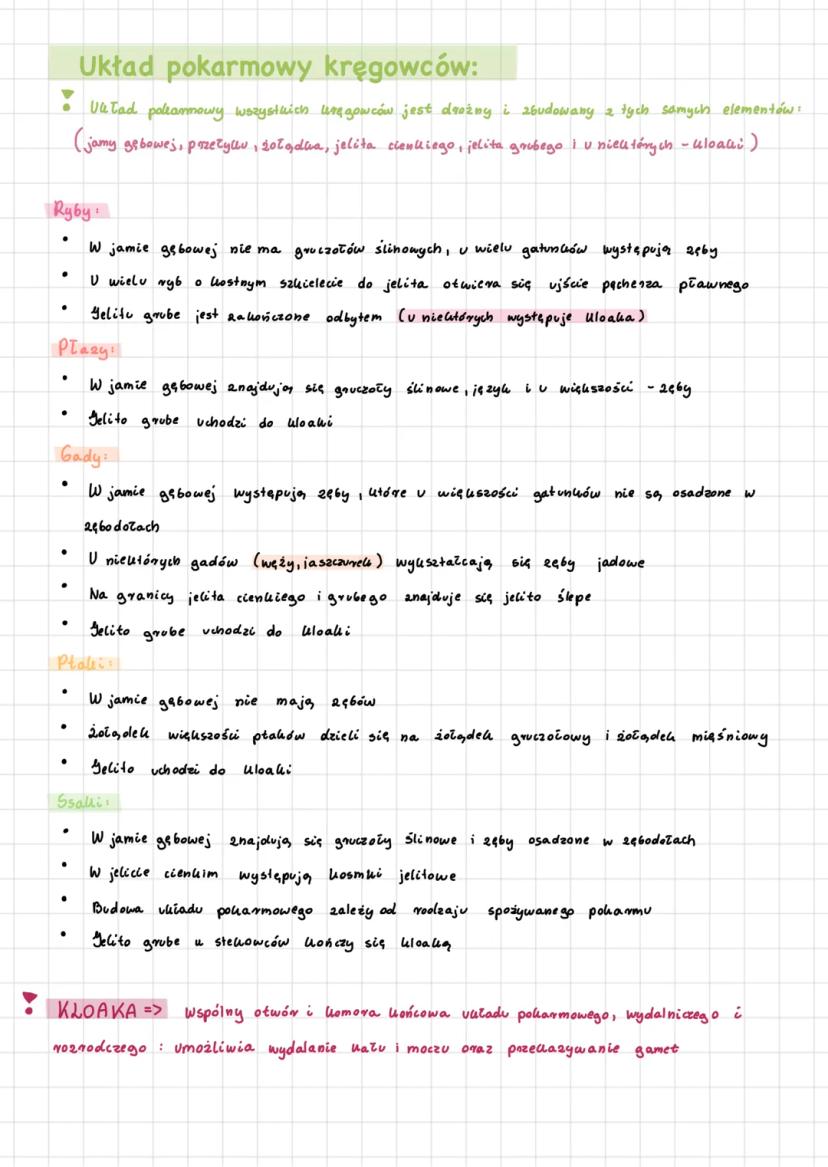 Układ pokarmowy kręgowców:
! Układ pokarmowy wszystkich kręgowców jest drożny i zbudowany z tych samych elementów:
(jamy gębowej, przełyku, żołądka, jelita cienkiego, jelita grubego i u niektórych - kloaki)
Ryby:
• W jamie gębowej nie ma gruczołów ślinowych, u wielu gatunków występują zęby
• U wielu ryb o kostnym szkielecie do jelita otwiera się ujście pęcherza pławnego
• Jelito grube jest zakończone odbytem (u niektórych występuje kloaka)
Płazy:
• W jamie gębowej znajdują się gruczoły ślinowe, język i u większości - zęby
• Jelito grube uchodzi do kloaki
Gady:
• W jamie gębowej występują zęby, które u większości gatunków nie są osadzone w
zębodołach
• U niektórych gadów (węży, jaszczurek) wykształcają się zęby jadowe
• Na granicy jelita cienkiego i grubego znajduje się jelito ślepe
• Jelito grube uchodzi do kloaki
Ptaki:
• W jamie gębowej nie mają zębów
• Żołądek większości ptaków dzieli się na żołądek gruczołowy i żołądek mięśniowy
• Jelito uchodzi do kloaki
Ssaki:
• W jamie gębowej znajdują się gruczoły ślinowe i zęby osadzone w zębodołach
• W jelicie cienkim występują kosmki jelitowe
• Budowa układu pokarmowego zależy od rodzaju spożywanego pokarmu
• Jelito grube u stekowców kończy się kloaką
! KLOAKA => Wspólny otwór i komora końcowa układu pokarmowego, wydalniczego i
rozrodczego : umożliwia wydalanie kału i moczu oraz przekazywanie gamet